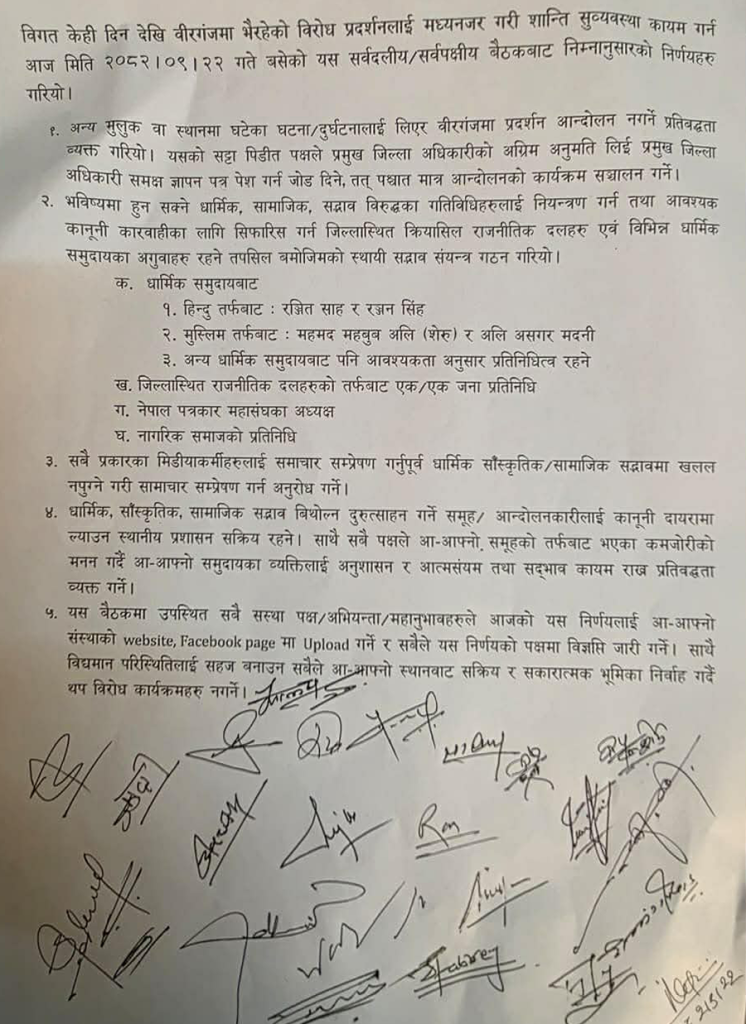 विगत केही दिन देखि वीरगंजमा भैरहेको विरोध प्रदर्शनलाई मध्यनजर गरी शान्ति सुव्यवस्था कायम गर्न
आज मिति २०८२।०९।२२ गते बसेको यस सर्वदलीय/सर्वपक्षीय बैठकबाट निम्नानुसारको निर्णयहरु
गरियो।
१. अन्य मुलुक वा स्थानमा घटेका घटना/दुर्घटनालाई लिएर वीरगंजमा प्रदर्शन आन्दोलन नगर्ने प्रतिबद्धता
व्यक्त गरियो। यसको सट्टा पिडीत पक्षले प्रमुख जिल्ला अधिकारीको अग्रिम अनुमति लिई प्रमुख जिल्ला
अधिकारी समक्ष ज्ञापन पत्र पेश गर्न जोड दिने, तत् पश्चात मात्र आन्दोलनको कार्यक्रम सञ्चालन गर्ने।
२. भविष्यमा हुन सक्ने धार्मिक, सामाजिक, सद्भाव विरुद्धका गतिविधिहरुलाई नियन्त्रण गर्न तथा आवश्यक
कानूनी कारवाहीका लागि सिफारिस गर्न जिल्लास्थित क्रियासिल राजनीतिक दलहरु एवं विभिन्न धार्मिक
समुदायका अगुवाहरु रहने तपसिल बमोजिमको स्थायी सद्भाव संयन्त्र गठन गरियो।
क. धार्मिक समुदायबाट
१. हिन्दु तर्फबाट : रञ्जित साह र रञ्जन सिंह
२. मुस्लिम तर्फबाट : महमद महबुव अलि (शेरु) र अलि असगर मदनी
३. अन्य धार्मिक समुदायबाट पनि आवश्यकता अनुसार प्रतिनिधित्व रहने
ख. जिल्लास्थित राजनीतिक दलहरुको तर्फबाट एक/एक जना प्रतिनिधि
ग. नेपाल पत्रकार महासंघका अध्यक्ष
घ. नागरिक समाजको प्रतिनिधि
३. सबै प्रकारका मिडीयाकर्मीहरुलाई समाचार सम्प्रेषण गर्नुपूर्व धार्मिक साँस्कृतिक/सामाजिक सद्भावमा खलल
नपुग्ने गरी सामाचार सम्प्रेषण गर्न अनुरोध गर्ने।
४. धार्मिक, साँस्कृतिक, सामाजिक सद्भाव बिथोल्न दुरुत्साहन गर्ने समूह/ आन्दोलनकारीलाई कानूनी दायरामा
ल्याउन स्थानीय प्रशासन सक्रिय रहने। साथै सबै पक्षले आ-आफ्नो समूहको तर्फबाट भएका कमजोरीको
मनन गर्दै आ-आफ्नो समुदायका व्यक्तिलाई अनुशासन र आत्मसंयम तथा सद्‌भाव कायम राख्न प्रतिवद्धता
व्यक्त गर्ने।
५. यस बैठकमा उपस्थित सबै सस्था पक्ष/अभियन्ता/महानुभावहरुले आजको यस निर्णयलाई आ-आफ्नो
संस्थाको website, Facebook page मा Upload गर्ने र सबैले यस निर्णयको पक्षमा विज्ञप्ति जारी गर्ने। साथै
विद्यमान परिस्थितिलाई सहज बनाउन सबैले आ-आफ्नो स्थानबाट सक्रिय र सकारात्मक भूमिका निर्वाह गर्दै
थप विरोध कार्यक्रमहरु नगर्ने।